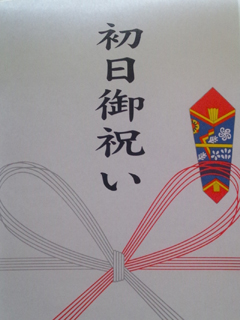 初日御祝い